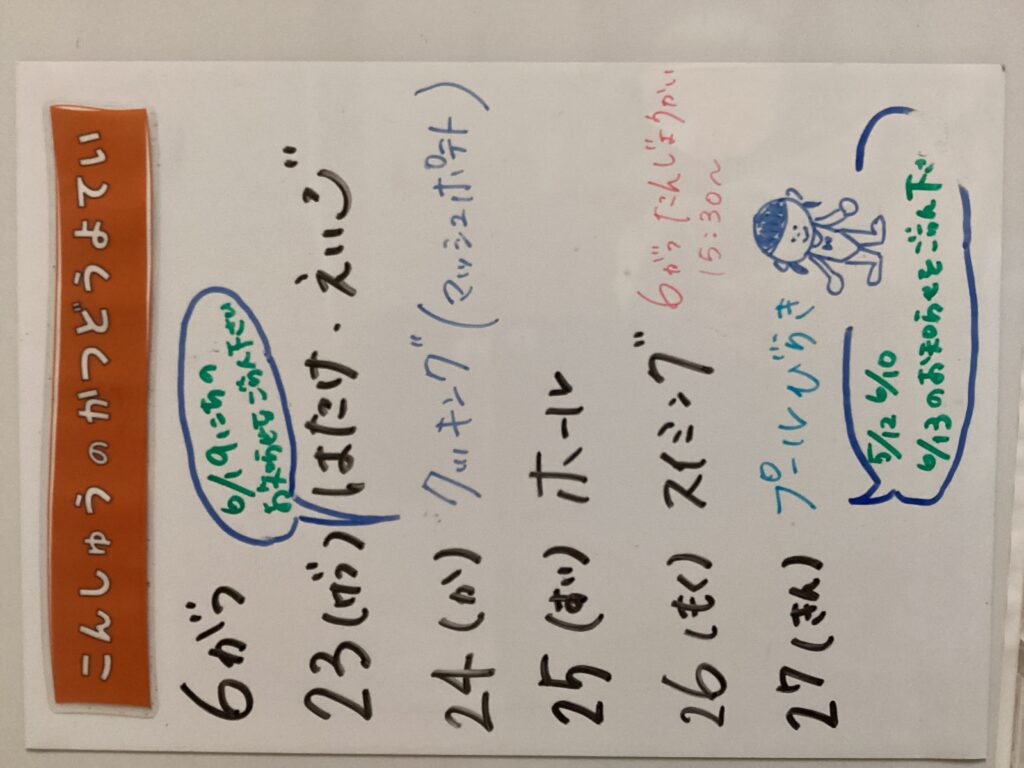 こんしゅうのかつどうよてい
6がつ
6/19にちの
お知らせをごらん下さい
23(げつ) はたけ・えいご
24(か) クッキング(マッシュポテト)
25(すい) ホール
6がつ たんじょうかい
15:30〜
26(もく) スイミング
27(きん) プールびらき
5/12 6/10
6/13のお知らせをごらん下さい